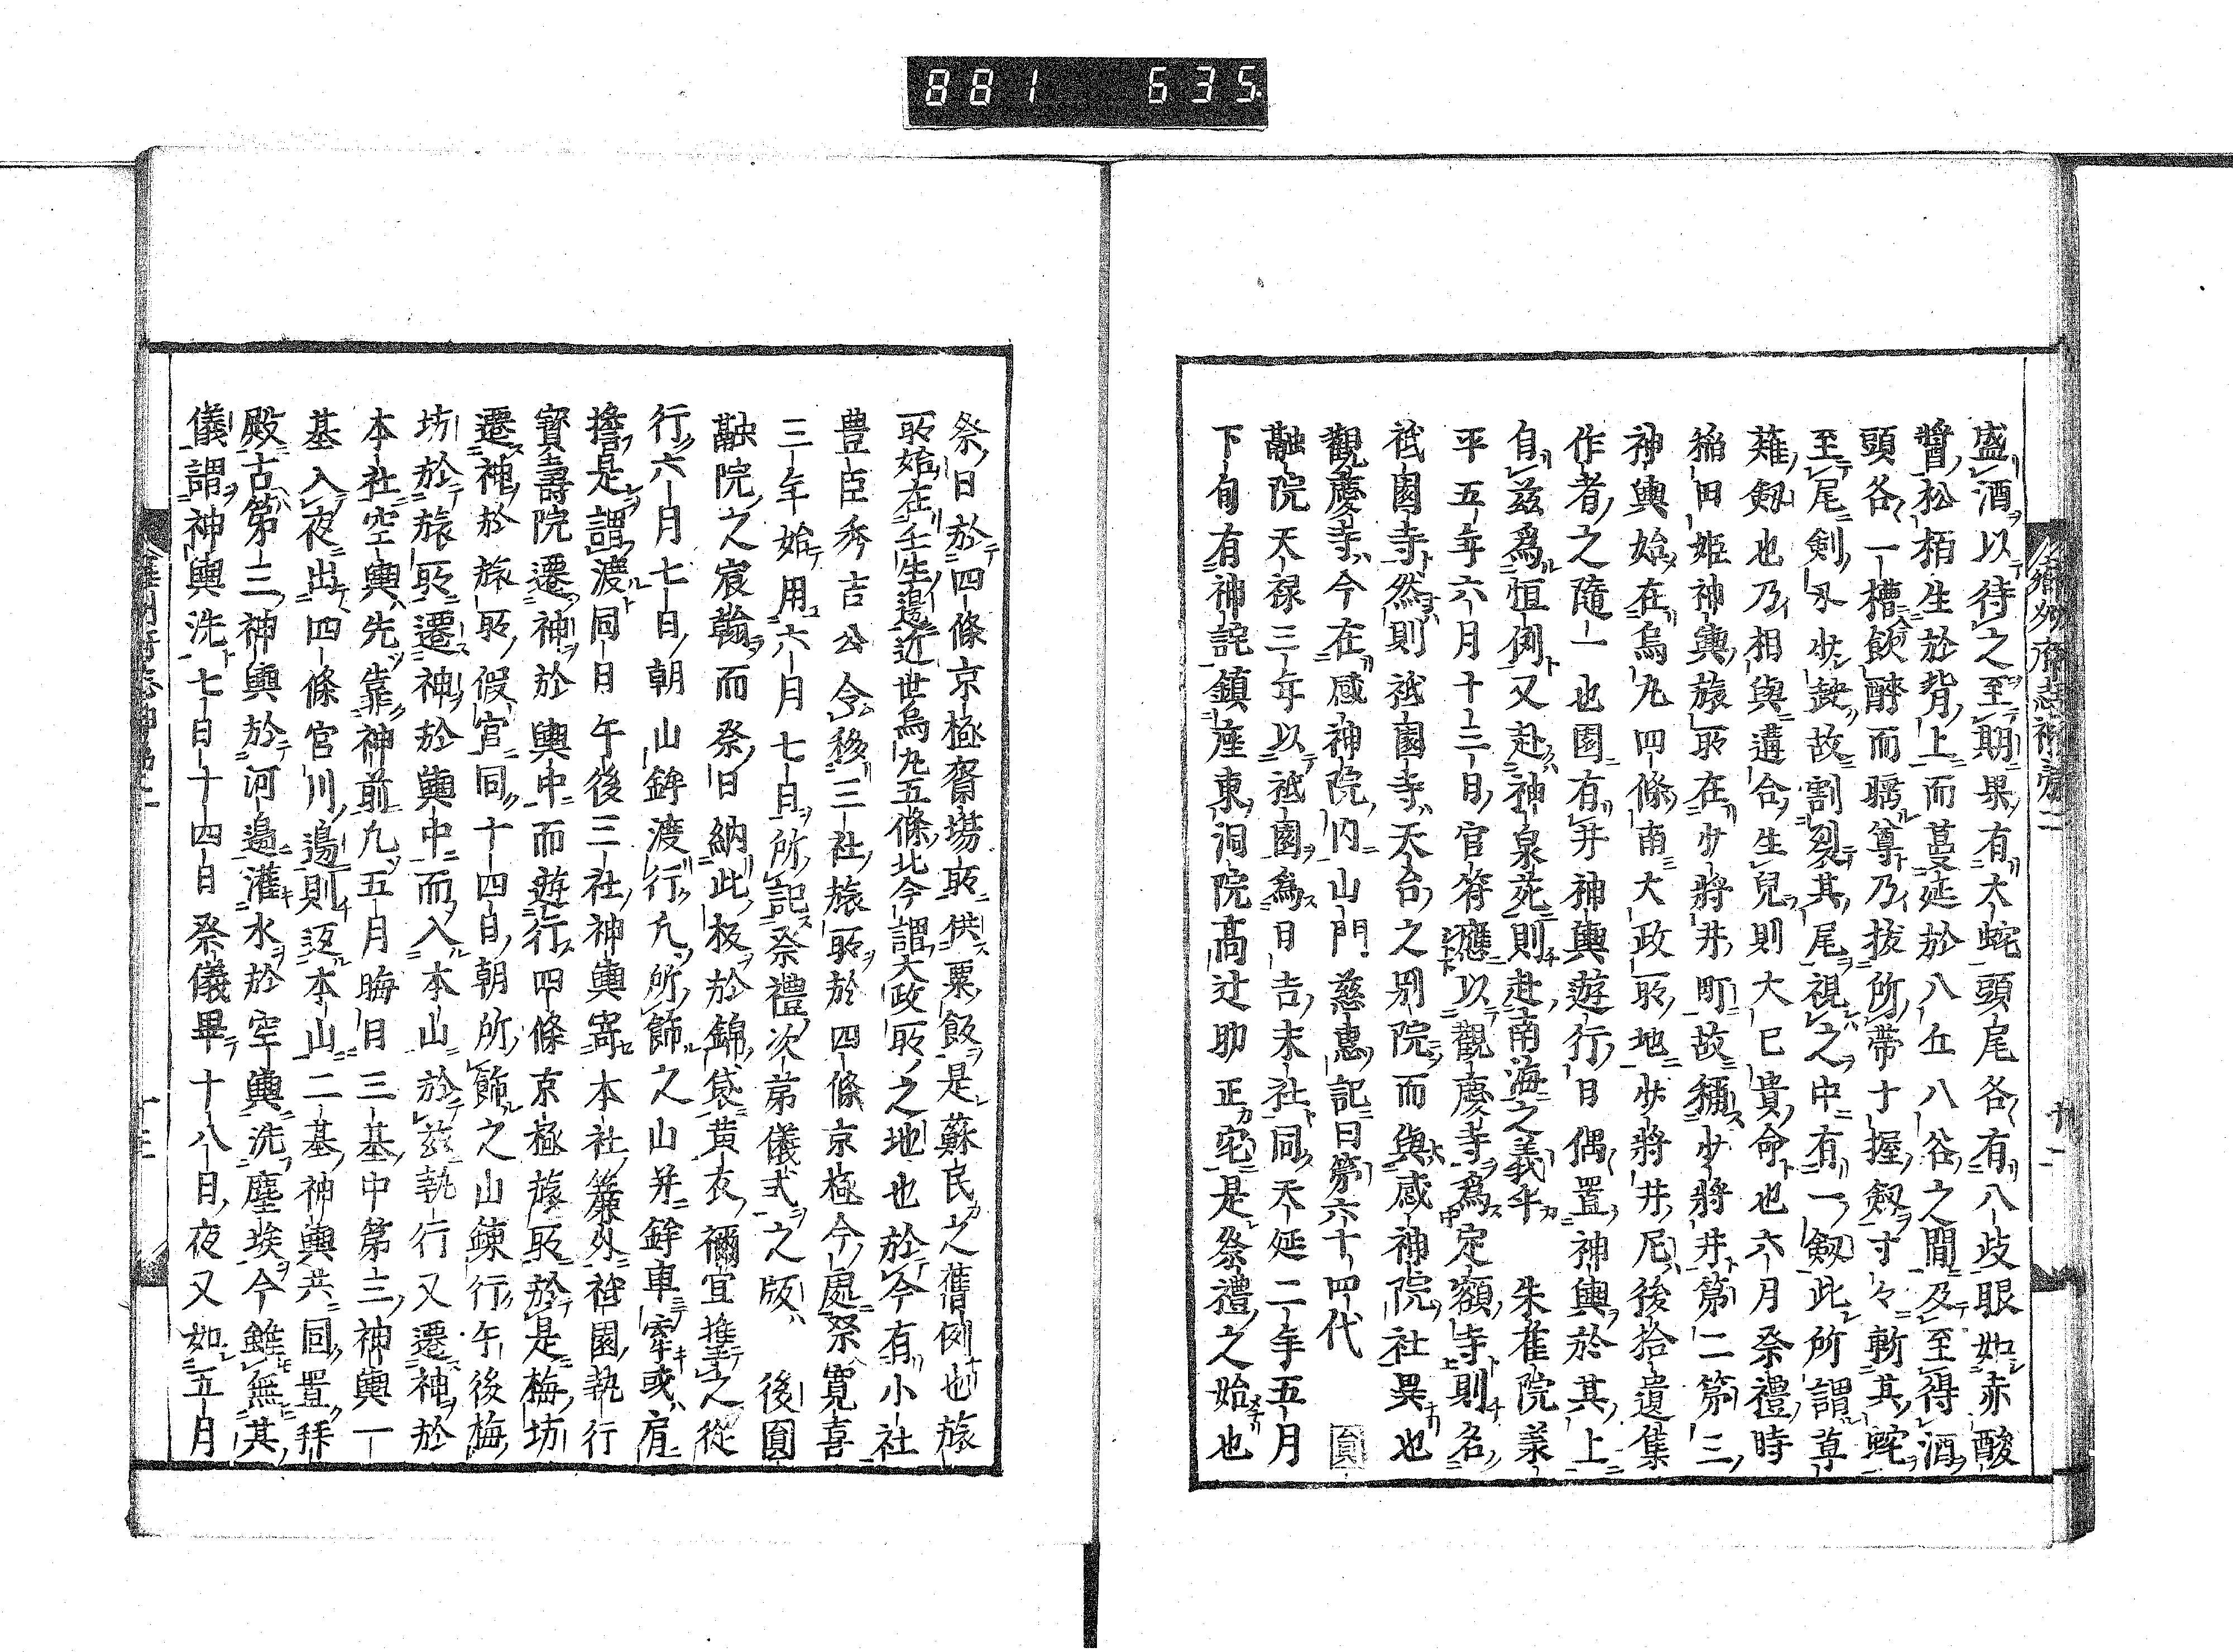 881 635
盛酒以待之至期果有大蛇頭尾各有八歧眼如赤酸
醬松栢生於背上而蔓延於八丘八谷之間及至得酒
頭各一槽飲醉而睡尊乃拔所帶十握劔寸々斬其蛇
至尾剣刃少缺故割裂其尾視之中有一劔此所謂草
薙劔也乃相與遘合生兒則大巳貴命也六月祭禮時
稲田姫神輿旅所在少將井町故稱少將井第二第三
神輿始在烏丸四條南大政所地少將井尼後拾遺集
作者之隨一也園有井神輿遊行日偶置神輿於其上
自茲爲恒例又赴神泉苑則赴南海之義乎 朱雀院羕
平五年六月十三日官符應以觀慶寺爲定額寺則名
祗園寺然則祗園寺天台之別院而與感神院社異也
觀慶寺今在感神院内山門慈惠記曰第六十四代 圓
融院天禄三年以祗園爲日吉末社同天延二年五月
下旬有神託鎮座東洞院高辻助正宅是祭禮之始也
祭日於四條京極齋場所供粟飯是蘇民之舊例也旅
所始在壬生邊近世烏丸五條北今謂大政所之地也於今有小社
豊臣秀吉公令移三社旅所於四條京極今處祭寛喜
三年始用六月七日所記祭禮次第儀式之版 後圓
融院之宸翰而祭日納此板於錦袋黄衣禰宜捧之從
行六月七日朝山鉾渡行凢所飾之山并鉾車牽或肩
擔是謂渡同日午後三社神輿寄本社簾外祗園執行
寳壽院遷神於輿中而遊行四條京極旅所於是梅坊
遷神於旅所假宮同十四日朝所飾之山錬行午後梅
坊於旅所遷神於輿中而入本山於茲執行又遷神於
本社空輿先靠神前凢五月晦日三基中第三神輿一
基入夜出四條宮川邊則返本山二基神輿共同置拝
殿古第三神輿於河邊灌水於空輿洗塵埃今雖無其
儀謂神輿洗七日十四日祭儀畢十八日夜又如五月